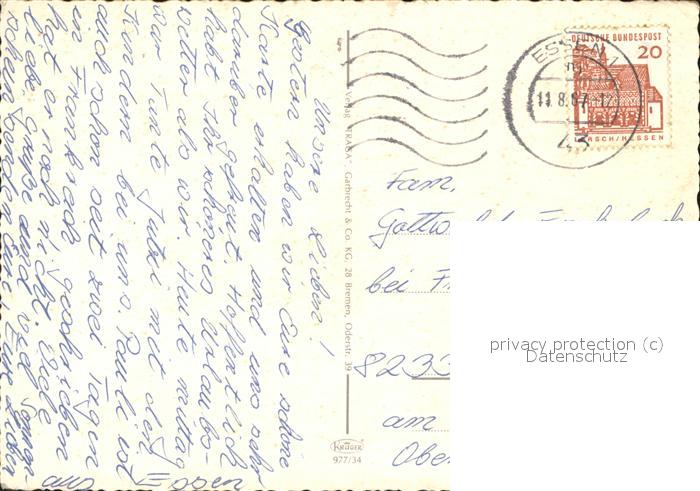 Unsere Lieben!
Gestern haben wir Eure schöne
Karte erhalten und uns sehr
darüber gefreut. Hoffentlich
habt Ihr schönes Urlaubs-
wetter so wie wir. Heute mittag
war Tante mit den
Kindern bei uns. Pauli ist
auch schon seit zwei Tagen
in Frankreich geschrieben
hat er noch nicht. Viele
liebe Grüße und
aus Essen
Verlag "FRAGA" Garbrecht & Co. KG, 28 Bremen, Oderstr. 39
KRÜGER
977/34
DEUTSCHE BUNDESPOST
20
LORSCH/HESSEN
ESSEN 1
11.8.67-12
Fam.
bei
823
am
Obe
privacy protection (c)
Datenschutz